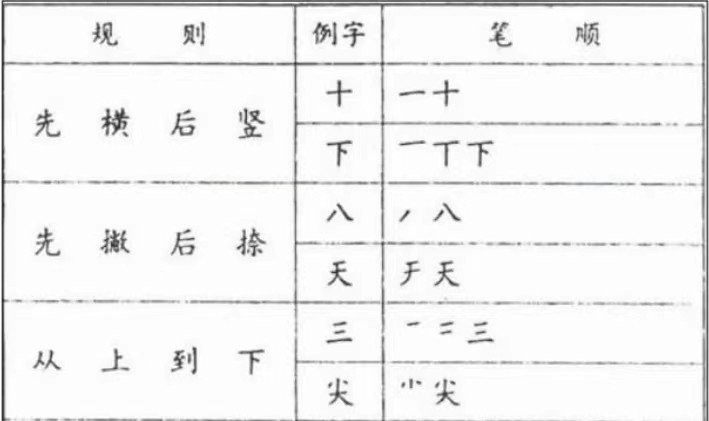 规则 例字 笔顺
先横后竖 十 一十
下 一丅下
先撇后捺 八 丿八
天 于天
从上到下 三 一二三
尖 小尖